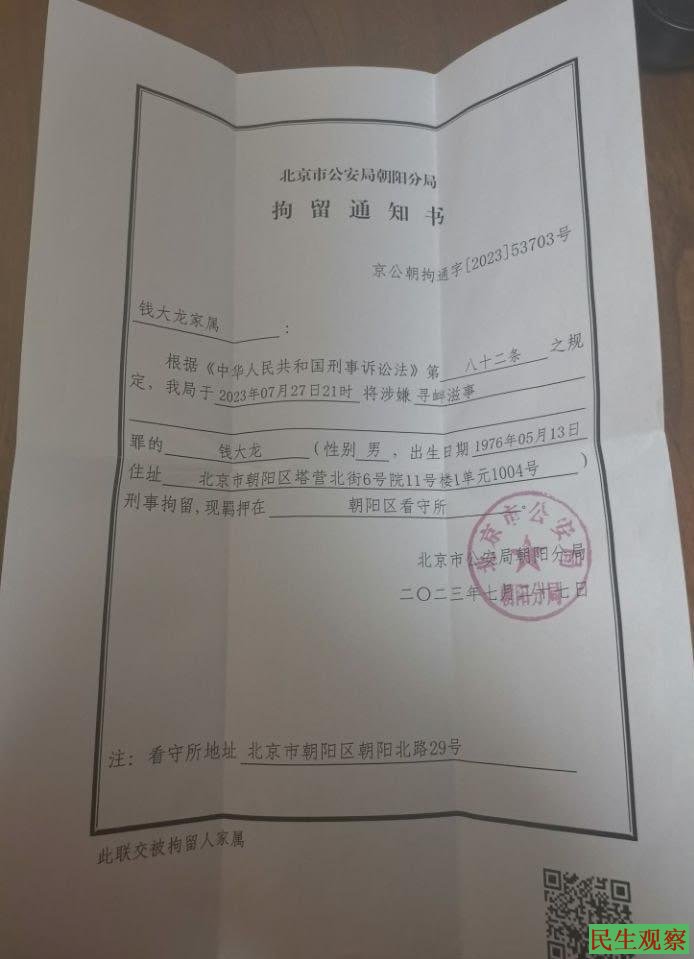 北京市公安局朝阳分局
拘留通知书
京公朝拘通字[2023]53703号
钱大龙家属：
根据《中华人民共和国刑事诉讼法》第八十二条之规
定，我局于2023年07月27日21时将涉嫌寻衅滋事
罪的钱大龙（性别男，出生日期1976年05月13日
住址北京市朝阳区塔营北街6号院11号楼1单元1004号）
刑事拘留,现羁押在朝阳区看守所。
北京市公安局朝阳分局
二〇二三年七月二十七日
北京市公安局
朝阳分局
注：看守所地址北京市朝阳区朝阳北路29号
此联交被拘留人家属
民生观察